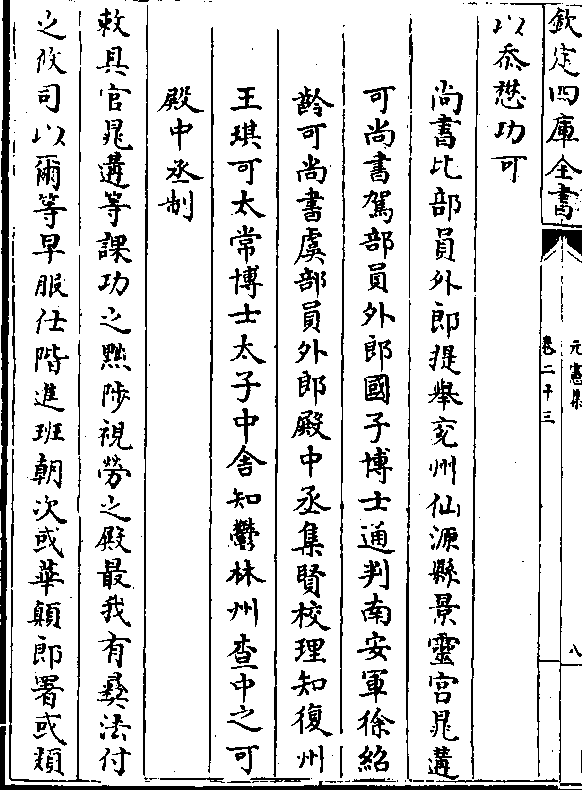 欽定四庫全書
元憲集
卷二十三
八
以忝懋功可
尚書比部員外郎提舉兗州仙源縣景靈宫晁遘
可尚書駕部員外郎國子博士通判南安軍徐紹
齡可尚書虞部員外郎殿中丞集賢校理知復州
王琪可太常博士太子中舍知鬱林州查中之可
殿中丞制
敕具官晁遘等課功之黜陟視勞之殿最我有彛法付
之攸司以爾等早服仕階進班朝次或華顛郎署或類